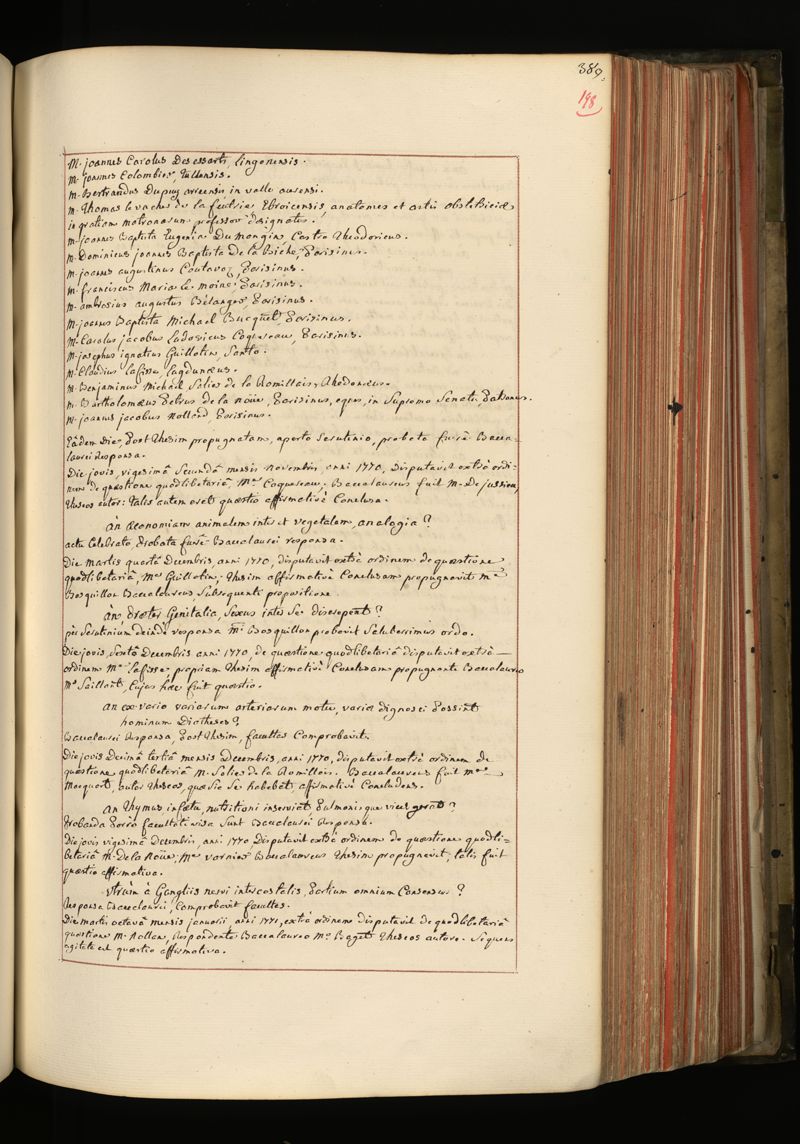 389.
198
M. joannes Carolus Desessartz, lingonensis.
M. joannes Colombier Tullensis.
M. Bertrandus Dupuy arreensis in valle aurensi.
M. Thomas le vacher de la feutrie Ebroicensis, anatomes et artis obstetriciæ
in gratiam matronarum professor designatus.
M. joannes Baptista Eugenius Dumangin Castro Theodoricus.
M. Dominicus joannes Baptista De la Biche, Parisinus.
M. joannes augustinus Coutavoz, Parisinus.
M. franciscus Maria le moine, Parisinus.
M. ambrosius augustus Bélanger Parisinus.
M. joannes Baptista Michael Bucquet, Parisinus.
M. Carolus jacobus Ludovicus Coquereau, Parisinus.
M. josephus ignatius Guillotin, Santo.
M. Claudius Lafisse, Lugdunæus.
M. Benjaminus Michael Solier de la Romillais, Rhedonæus.
M. Bartholomæus Petrus de la noüe, Parisinus, eques, in Supremo Senatu Patronus.
M. joannes jacobus Nolland, Parisinus.
Eâdem Die, Post Thesim propugnatam, aperto Scrutinio, probata fuêre Bacca-
laurei Responsa.
Die jovis, vigesimâ Secundâ mensis novembris, anni 1770, Disputavit extrà ordi-
nem de quæstione quodlibetariâ, Mer Coquereau; Baccalaureus fuit M. De jussieu,
Theseos autor: Talis autem erat quæstio affirmativè Conclusa.
àn œconomiam animalem inter et vegetalem, analogia?
actu Celebrato, Probata fuêre Baccalaurei responsa.
Die martis quartâ Decembris, anni 1770, disputavit extrà ordinem de quæstione
quodlibetariâ, Mer Guillotin; Thesim affirmativè Conclusam propugnavit mer
Bosquillon Baccalaureus, Subsequenti propositione.
àn, Præter Genitalia, Sexus inter Se discrepent?
per Scrutinium deindè responsa Mi Bosquillon probavit Saluberrimus ordo.
Die jovis, Sextâ Decembris anni 1770, de quæstione quodlibetariâ disputavit extrà
ordinem Mer Lafisse propriam Thesim affirmativè Conclusam propugnante Baccalaureo
Mo Saillant, Cujus hæc fuit quæstio.
an ex vario variarum arteriarum motu, variæ dignosci Possint
hominum Diatheses?
Baccalaurei Responsa, Post Thesim, facultas Comprobavit.
Die jovis Decimâ tertiâ mensis Decembris, anni 1770, disputavit extrà ordinem de
quæstione quodlibetariâ M. Solier de la Romillais. Baccalaureus fuit mer
Macquart, autor Theseos, quæ Sic Se habebat, affirmativè Concludens.
An Thymus infœtu, nutritioni inserviat Pulmonisque vices gerat?
Probanda Porrò facultati visa Sunt Baccalaurei Responsa.
Die jovis vigesimâ Decembris, anni 1770 Disputavit extrà ordinem de quæstione quodli-
betariâ M. De la Noüe; Mer varnier Baccalaureus Thesim propugnavit; talis fuit
quæstio affirmativa.
Utrùm à Gangliis nervi intercostalis, Partium omnium Consensus?
Responsa Baccalaurei, Comprobavit facultas.
Die martis octavâ mensis januarii anni 1771, extrà ordinem disputavit de quodlibetariâ
quæstione M. Rollan, Respondente Baccalaureo Mo Baget Theseos autore. Sequens
agitata est quæstio affirmativa.